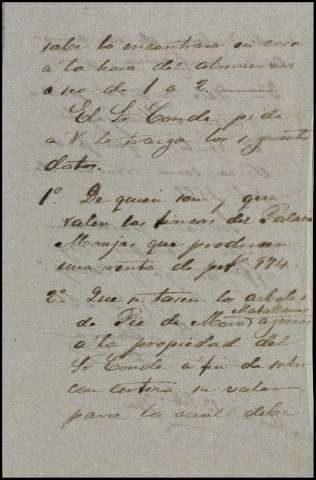 sabe lo encontrará en casa
á la hora del almuerzo
ó sea de 1 á 2.
El Sr Conde pide
á V. le traiga los siguientes
datos.
1º De quien son y que
valen las fincas del Palacio
Monjas que producen
una renta de 974.
2º Que se tasen los arboles
de Pie de Moro,
Matallanas
á la propiedad del
Sr Conde á fin de saber
con certeza su valor
para lo cual debe